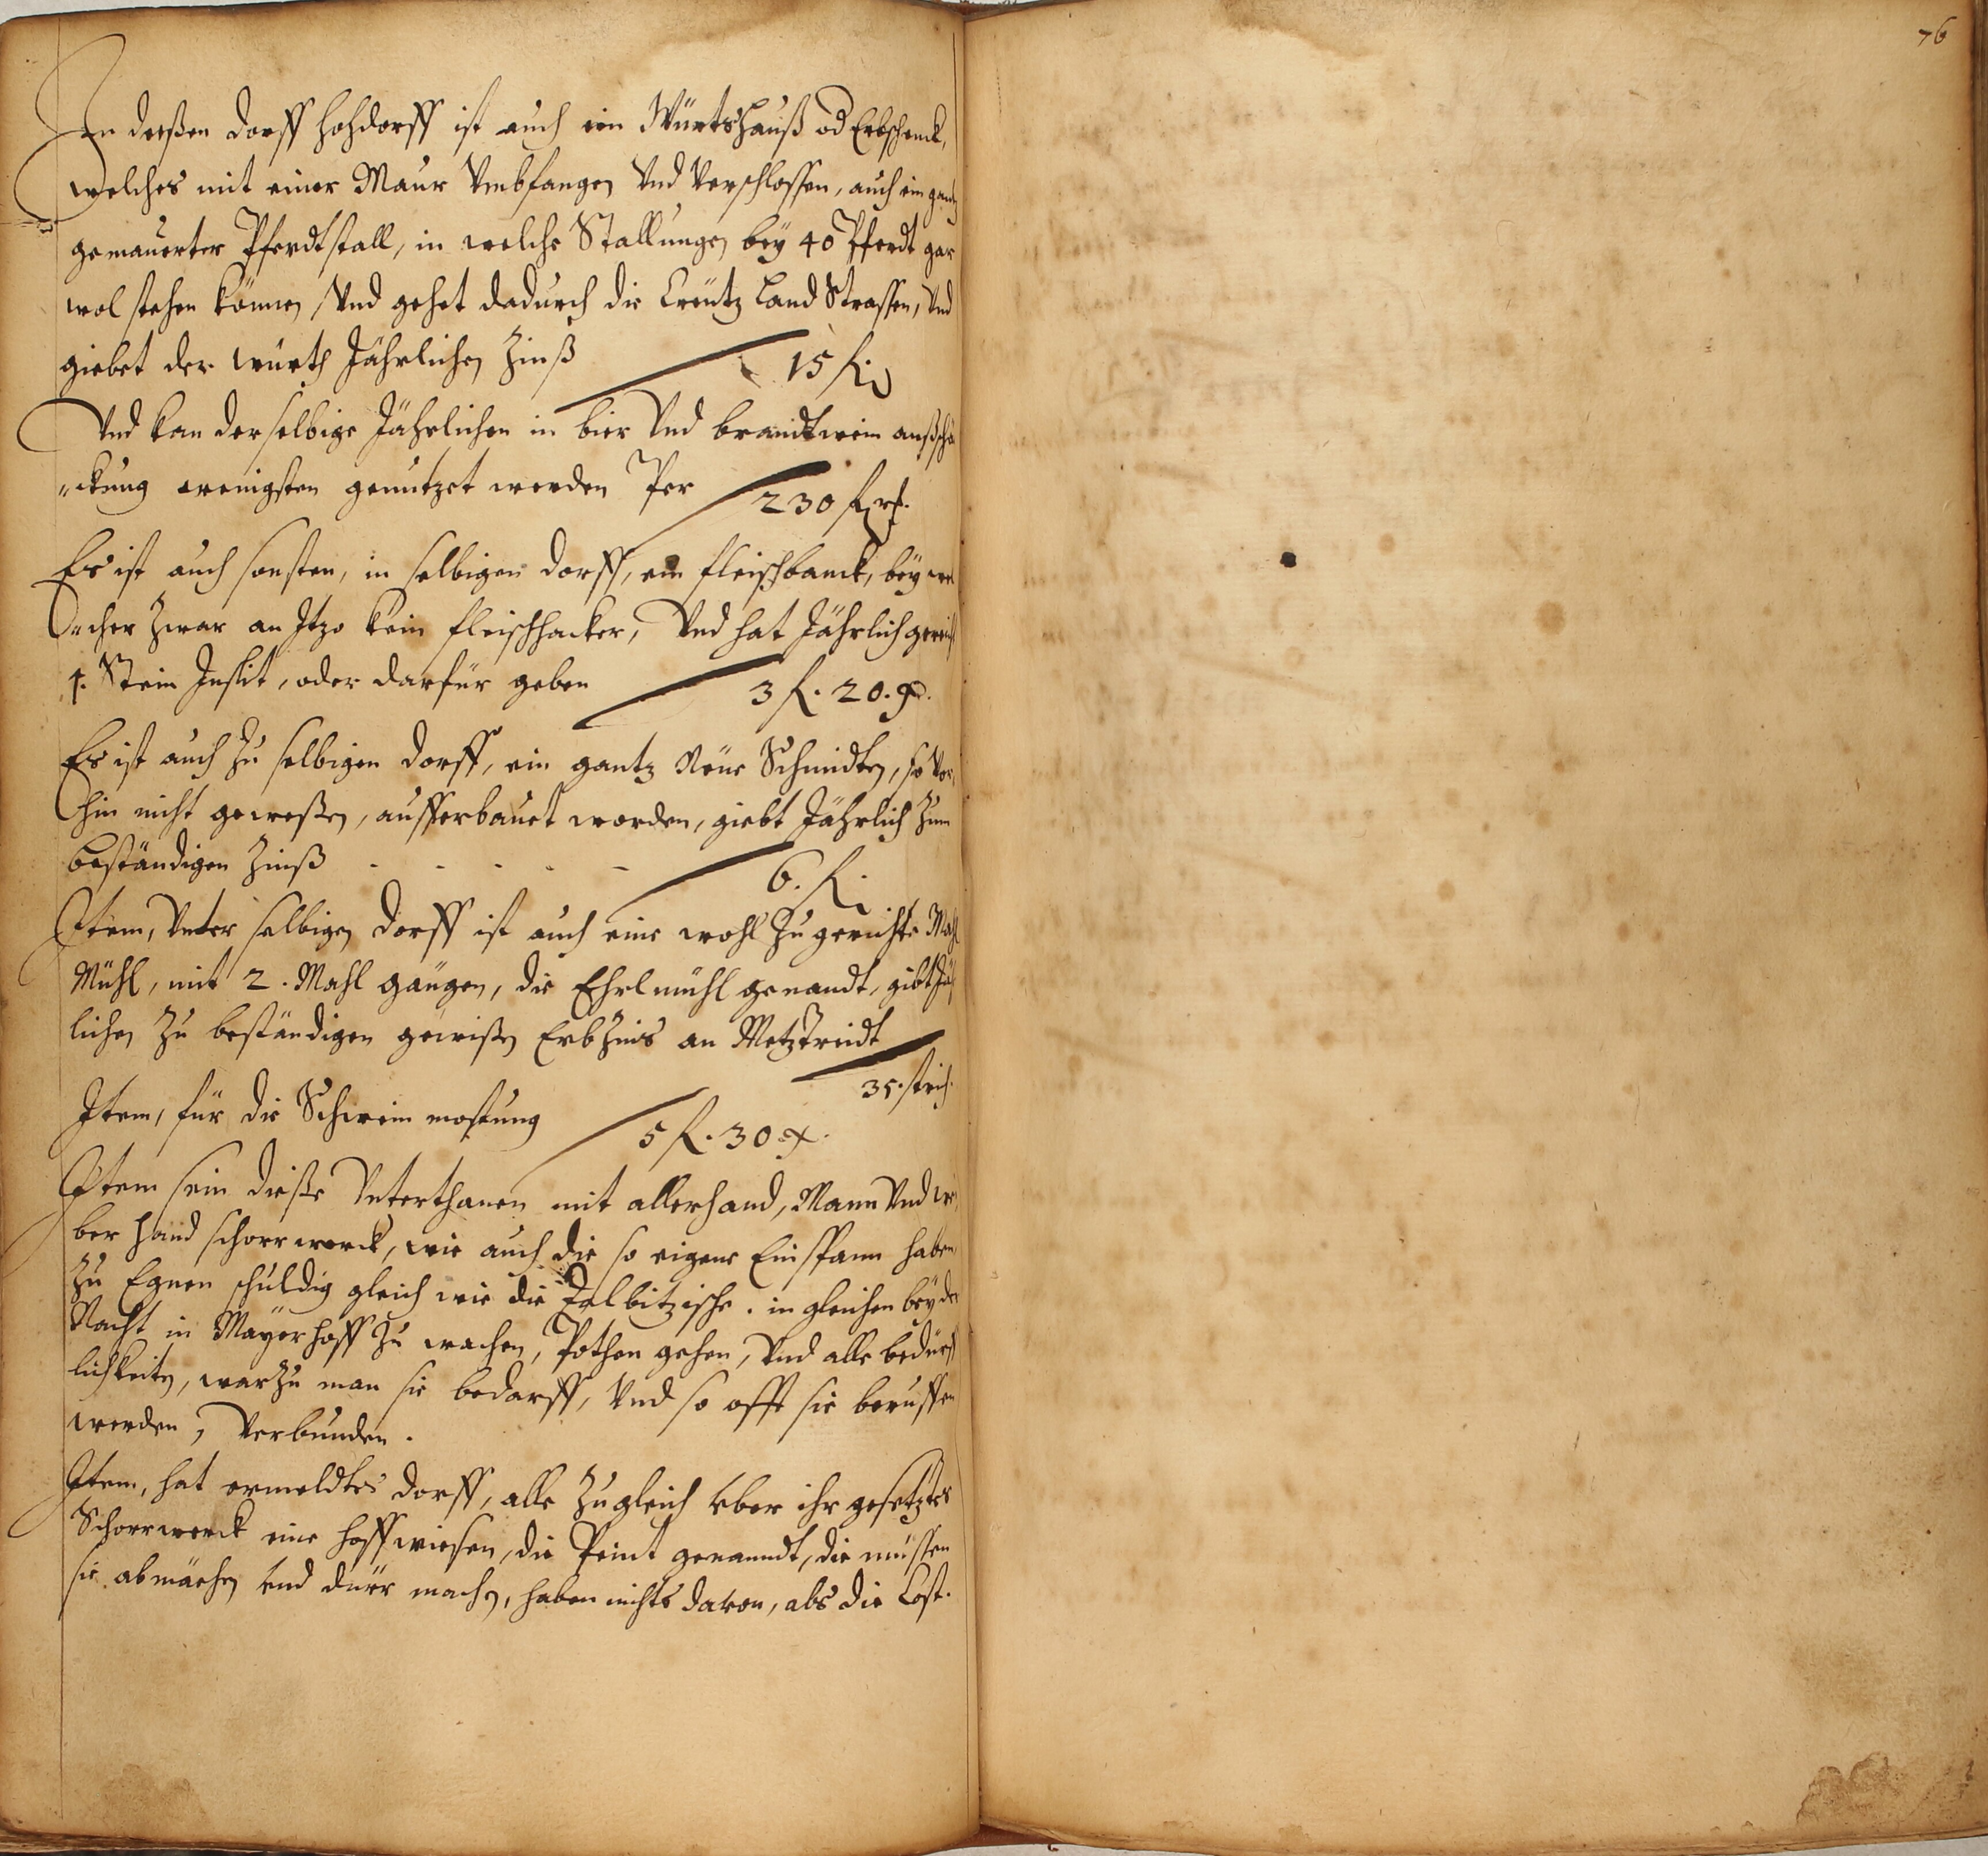 76
In dießen dorff Hohdorff ist auch ein Würtshauß od Erbschenck,
welches mit einer Maur Vmbfangen Vnd Verschlossen, auch ein gantz
gemauerter Pferdtstall, in welche Stallungen bey 40 Pferdt gar
wol stehen können, Vnd gehet dadurch die Creütz Land Strassen, Vnd
giebet der würth Jährlichen Zinß 15 fl.
Vnd kan derselbige Jährlichen in bier Vnd brandtwein außschä
ckung wenigsten genutzet werden Per 230 fl.
Es ist auch sonsten, in selbigen dorff, ein fleischbanck, bey wel
cher Zwar an Itzo kein fleischhacker, Vnd hat Jährlich gereicht
1. Stein Inslit, oder darfür geben 3 fl. 20.
Es ist auch Zu selbigen dorff, ein gantz Neue Schmidten, so Vor
hin nicht geweßen, aufferbauet worden, giebt Jährlich Zum
beständigen Zinß - - - - - 6. fl.
Item, Vnter selbigen dorff ist auch eine wohl Zugerichte Mahl
Mühl, mit 2. Mahl gängen, die Ehrlmühl genandt, gibt Jähr
lichen Zu beständigen gewißen ErbZins an Metztreidt
35. strich.
Item, für die Schwein mastung 5 fl. 30
Item sein dieße Vnterthanen mit allerhand, Mann Vnd wei
ber Hand schorrwerck, wie auch die so eigene Einspann haben,
Zu Egnen schuldig gleich wie die . in gleichen bey der
Nacht in Mäyerhoff Zu wachen, Pothen gehen, Vnd alle bedürf
lichkeiten, warZu man sie bedarff, Vnd so offt sie beruffen
werden, Verbunden.
Item, hat ermeldtes dorff, alle Zugleich vber ihr gesetztes
Schorrwerck eine Hoffwiesen, die Peint genanndt, die müssen
sie abmaehen vnd dürr machen, haben nichts davon, als die Cost.